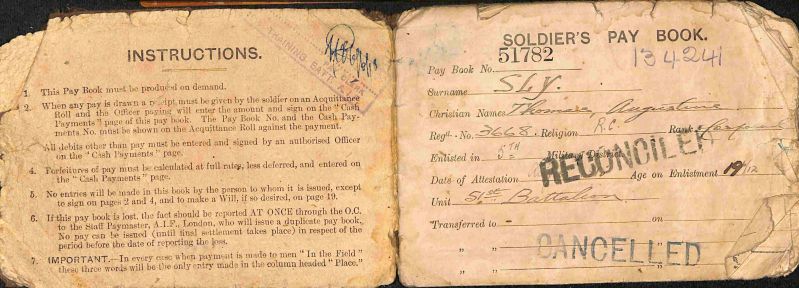 INSTRUCTIONS.
TRAINING BATT
1. This Pay Book must be produced on demand.
2. When any pay is drawn a receipt must be given by the soldier on an Acquittance
Roll and the Officer paying will enter the amount and sign on the "Cash
Payments" page of this pay book. The Pay Book No. and the Cash Pay-
ments No. must be shown on the Acquittance Roll against the payment.
All debits other than pay must be entered and signed by an authorised Officer
on the "Cash Payments" page.
4. Forfeitures of pay must be calculated at full rates, less deferred, and entered on
the "Cash Payments" page.
5. No entries will be made in this book by the person to whom it is issued, except
to sign on pages 2 and 4, and to make a Will, if so desired, on page 19.
6. If this pay book is lost, the fact should be reported AT ONCE through the O.C.
to the Staff Paymaster, A.I.F., London, who will issue a duplicate pay book.
No pay can be issued (until final settlement takes place) in respect of the
period before the date of reporting the loss.
7. IMPORTANT.—In every case when payment is made to men "In the Field"
these three words will be the only entry made in the column headed "Place."
SOLDIER'S PAY BOOK.
134241
Pay Book No. 51782
Surname Sly.
Christian Names Thomas Augustine
Regtl. No. 3668 Religion R.C. Rank
Enlisted in 5TH Military District
RECONCILED
Date of Attestation Age on Enlistment 19
Unit 51st Battalion
Transferred to on
" " "
CANCELLED
" " "